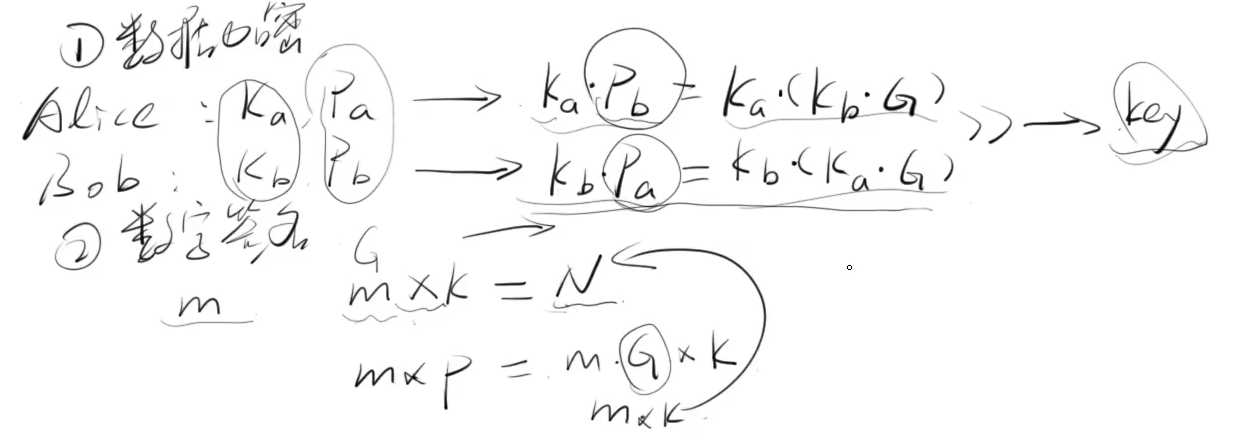 ① 数据加密
Alice : Ka Pa → Ka·Pb = Ka·(Kb·G) >> → key
Bob : Kb Pb → Kb·Pa = Kb·(Ka·G)
② 数字签名 G →
m m×K = N
m×P = m·G×K
m×K